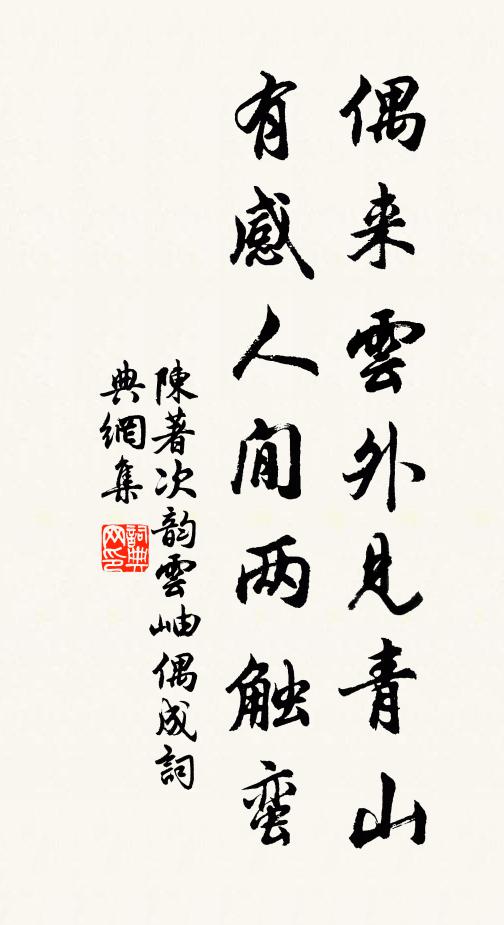 偶来雲外見青山
有感人间两触蛮
陳著次韵雲岫偶成詞
典網集
詞典
网印